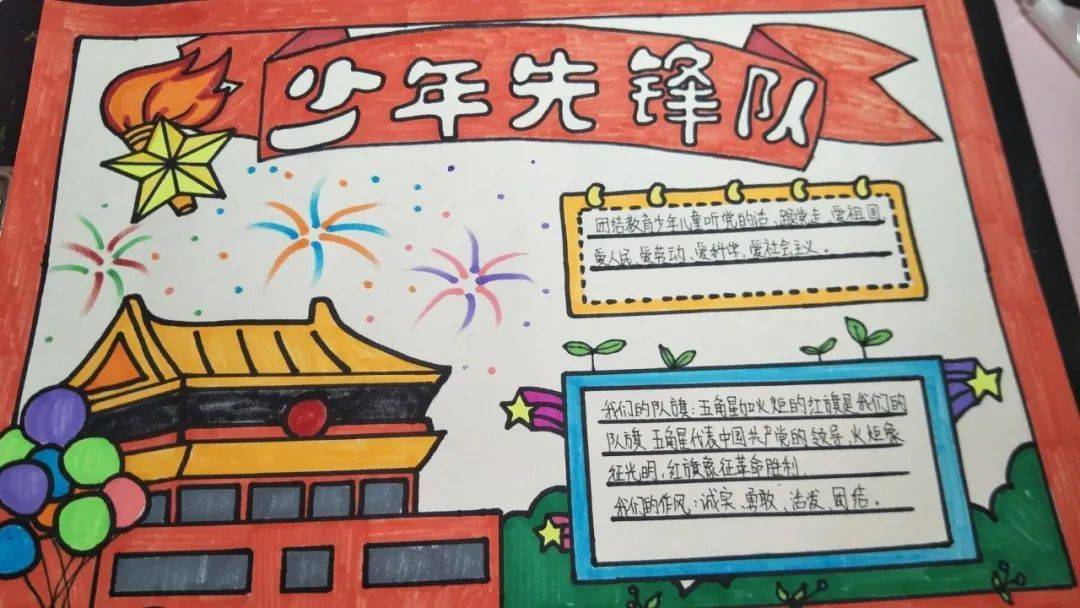 少年先锋队
团结教育少年儿童听党的话、跟党走、爱祖国
爱人民、爱劳动、爱科学、爱社会主义。
我们的队旗：五角星加火炬的红旗是我们的
队旗、五角星代表中国共产党的领导，火炬象
征光明，红旗象征革命胜利.
我们的作风：诚实、勇敢、活发、团结。